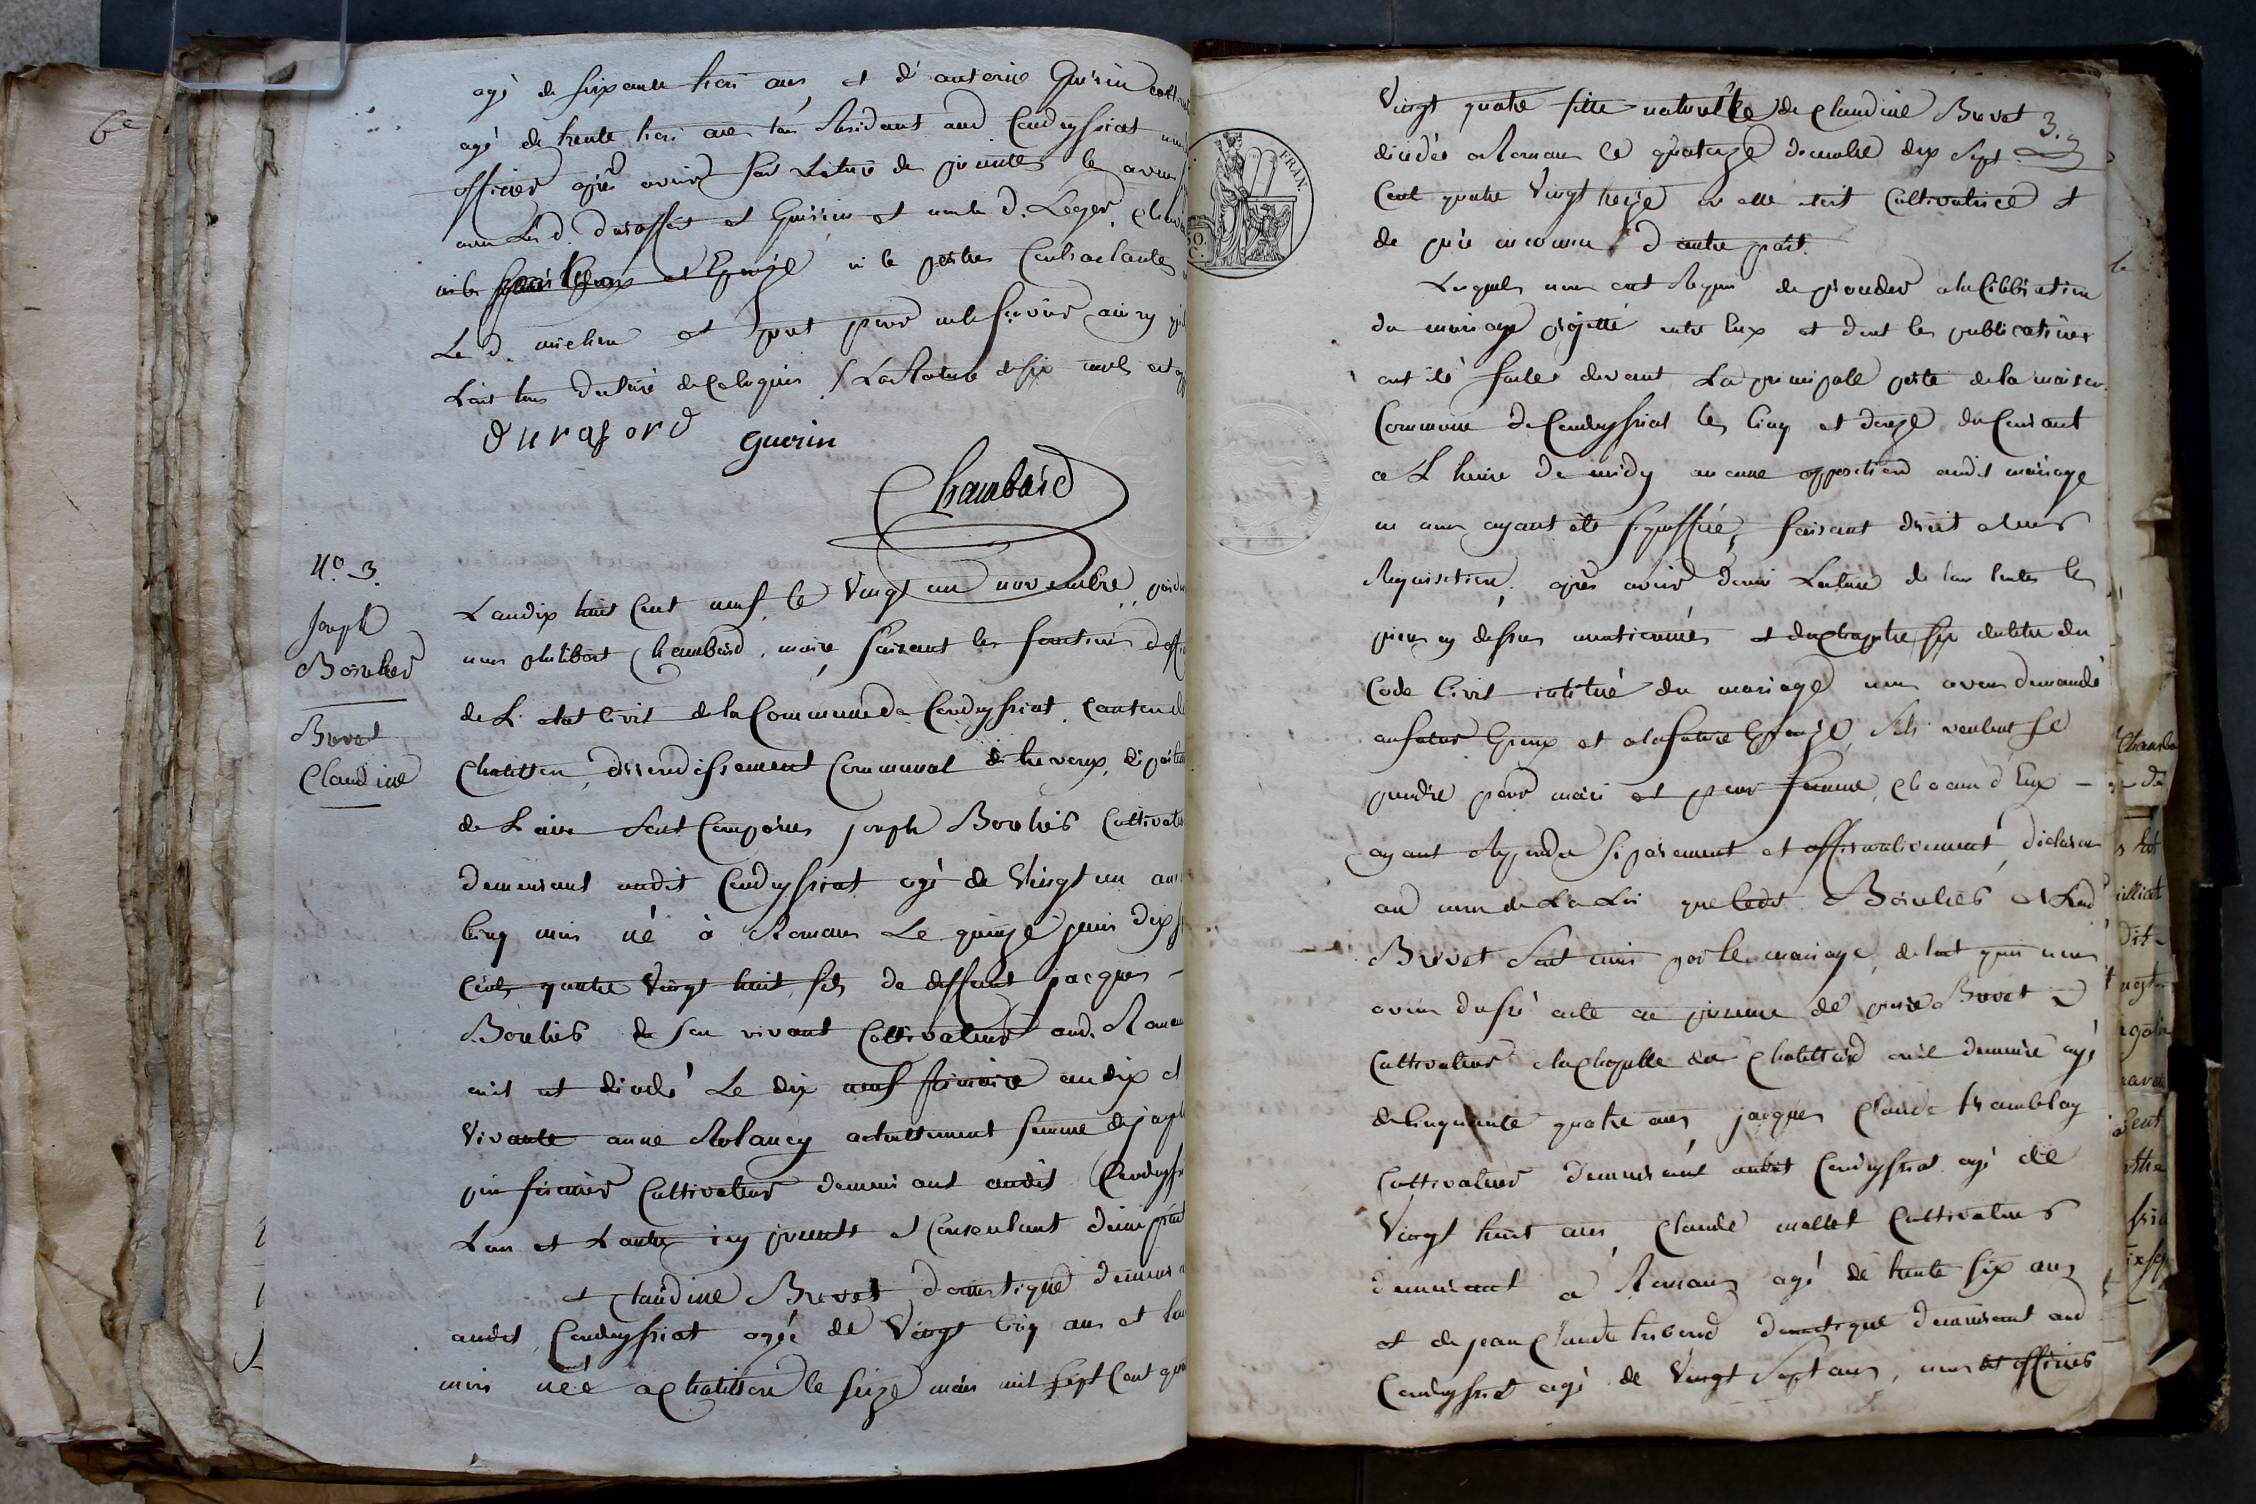 6e
agé de soixante trois ans et d'antoine Guérin
agé de trente trois ans tous Residant aud Condeyssiat
officier après avoir fait Lecture de
avec Les d. durafford et Guérin et non le d. Leger,
ni les et Epouse ni les parties Contractantes
Le d. michon et pour ne le savoir ainsy
Lais tous de ce Requis
duraford guerin
Chambard
N.o 3.
Joseph
Boulier
Brevet
Claudine
L'an dix huit Cent neuf, le Vingt un novembre,
nous philibert Chambard, maire, faisant les fonctions
de L'etat Civil de la Commune de Condeyssiat, Canton de
Chatillon, arrondissement Communal de trevoux,
de L'ain Sont Comparus joseph Cultivateur
demeurant audit Condeyssiat agé de Vingt un ans
Cinq mois né à Romans Le quinze juin dix
Cents quatre Vingt huit, fils de deffunt jacques
de son vivant Cultivateur aud. Romans
et décédé Le dix neuf frimaire an dix et
Vivante anne Rolancy actuellement femme de joseph
Cultivateur demeurant audit
L'un et L'autre icy présents et Consentant d'une part
et Claudine Brevet domestique
audit Condeyssiat agée de Vingt Cinq ans et
mois née a Chatillon le seize mars mil sept Cent
FRAN.
3.
Vingt quatre fille naturelle de Claudine Brevet
décédée a Romans Le quatorze decembre dix sept
Cent quatre Vingt treize ou elle etoit Cultivatrice et
de père inconnu d'autre part.
Lesquels nous ont Requis de proceder a la Célébration
du mariage projetté entre Eux et dont les publications
ont été faites devant La principalle porte de la maison
Commune de Condeyssiat les Cinq et douze du Courant
a L'heure de midy aucune opposition audit mariage
ne nous ayant été signiffiée, faisant droit a leur
Requisition, après avoir donné Lecture de tous toutes les
pieces cy dessus mentionnées et du Chapitre six du titre du
Code Civil intitulé du mariage nous avons demandé
au futur Epoux et a la future Epouse, s'ils veulent se
prendre pour mari et pour femme, Chacun d'Eux
ayant Repondu séparement et affirmativement, déclarons
au nom de La Loi que Ledit et Lad
Brevet Sont unis par le mariage, de tout quoi nous
avons dressé acte en présence de pierre Brevet
Cultivateur a la Chapelle du Chatelard ou il demeure agé
de Cinquante quatre ans, jacques Claude tramblay
Cultivateur demeurant audit Condeyssiat agé de
Vingt huit ans, Claude mallet Cultivateur
demeurant à Romans agé de trente six ans
et de jean Claude domestique demeurant aud
Condeyssiat agé de Vingt Sept ans, nous dit officier